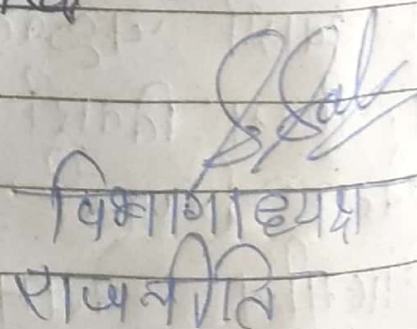 विभागाध्यक्ष
राजनीति